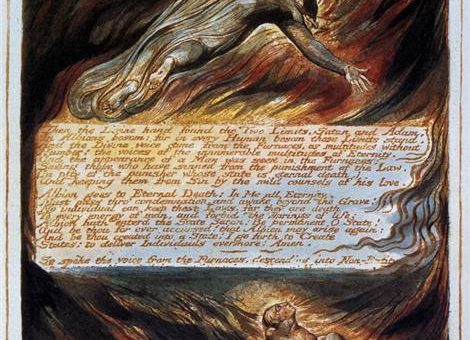 Then the Divine hand found the Two Limits, Satan and Adam,
In Albions bosom: for in every Human bosom those Limits stand.
And the Divine voice came from the Furnaces, as multitudes without
Number! the voices of the innumerable multitudes of Eternity.
And the appearance of a Man was seen in the Furnaces;
Saving those who have sinned from the punishment of the Law,
In pity of the punisher whose state is eternal death,
And keeping them from Sin by the mild counsels of his love.
Albion goes to Eternal Death: In Me all Eternity
Must pass thro' condemnation, and awake beyond the Grave!
No individual can keep these Laws, for they are death
To every energy of man, and forbid the springs of life;
Albion hath enterd the State Satan! Be permanent O State!
And be thou for ever accursed! that Albion may arise again:
And be thou created into a State! I go forth to Create
States: to deliver Individuals evermore! Amen.
So spoke the voice from the Furnaces, descending into Non-Entity